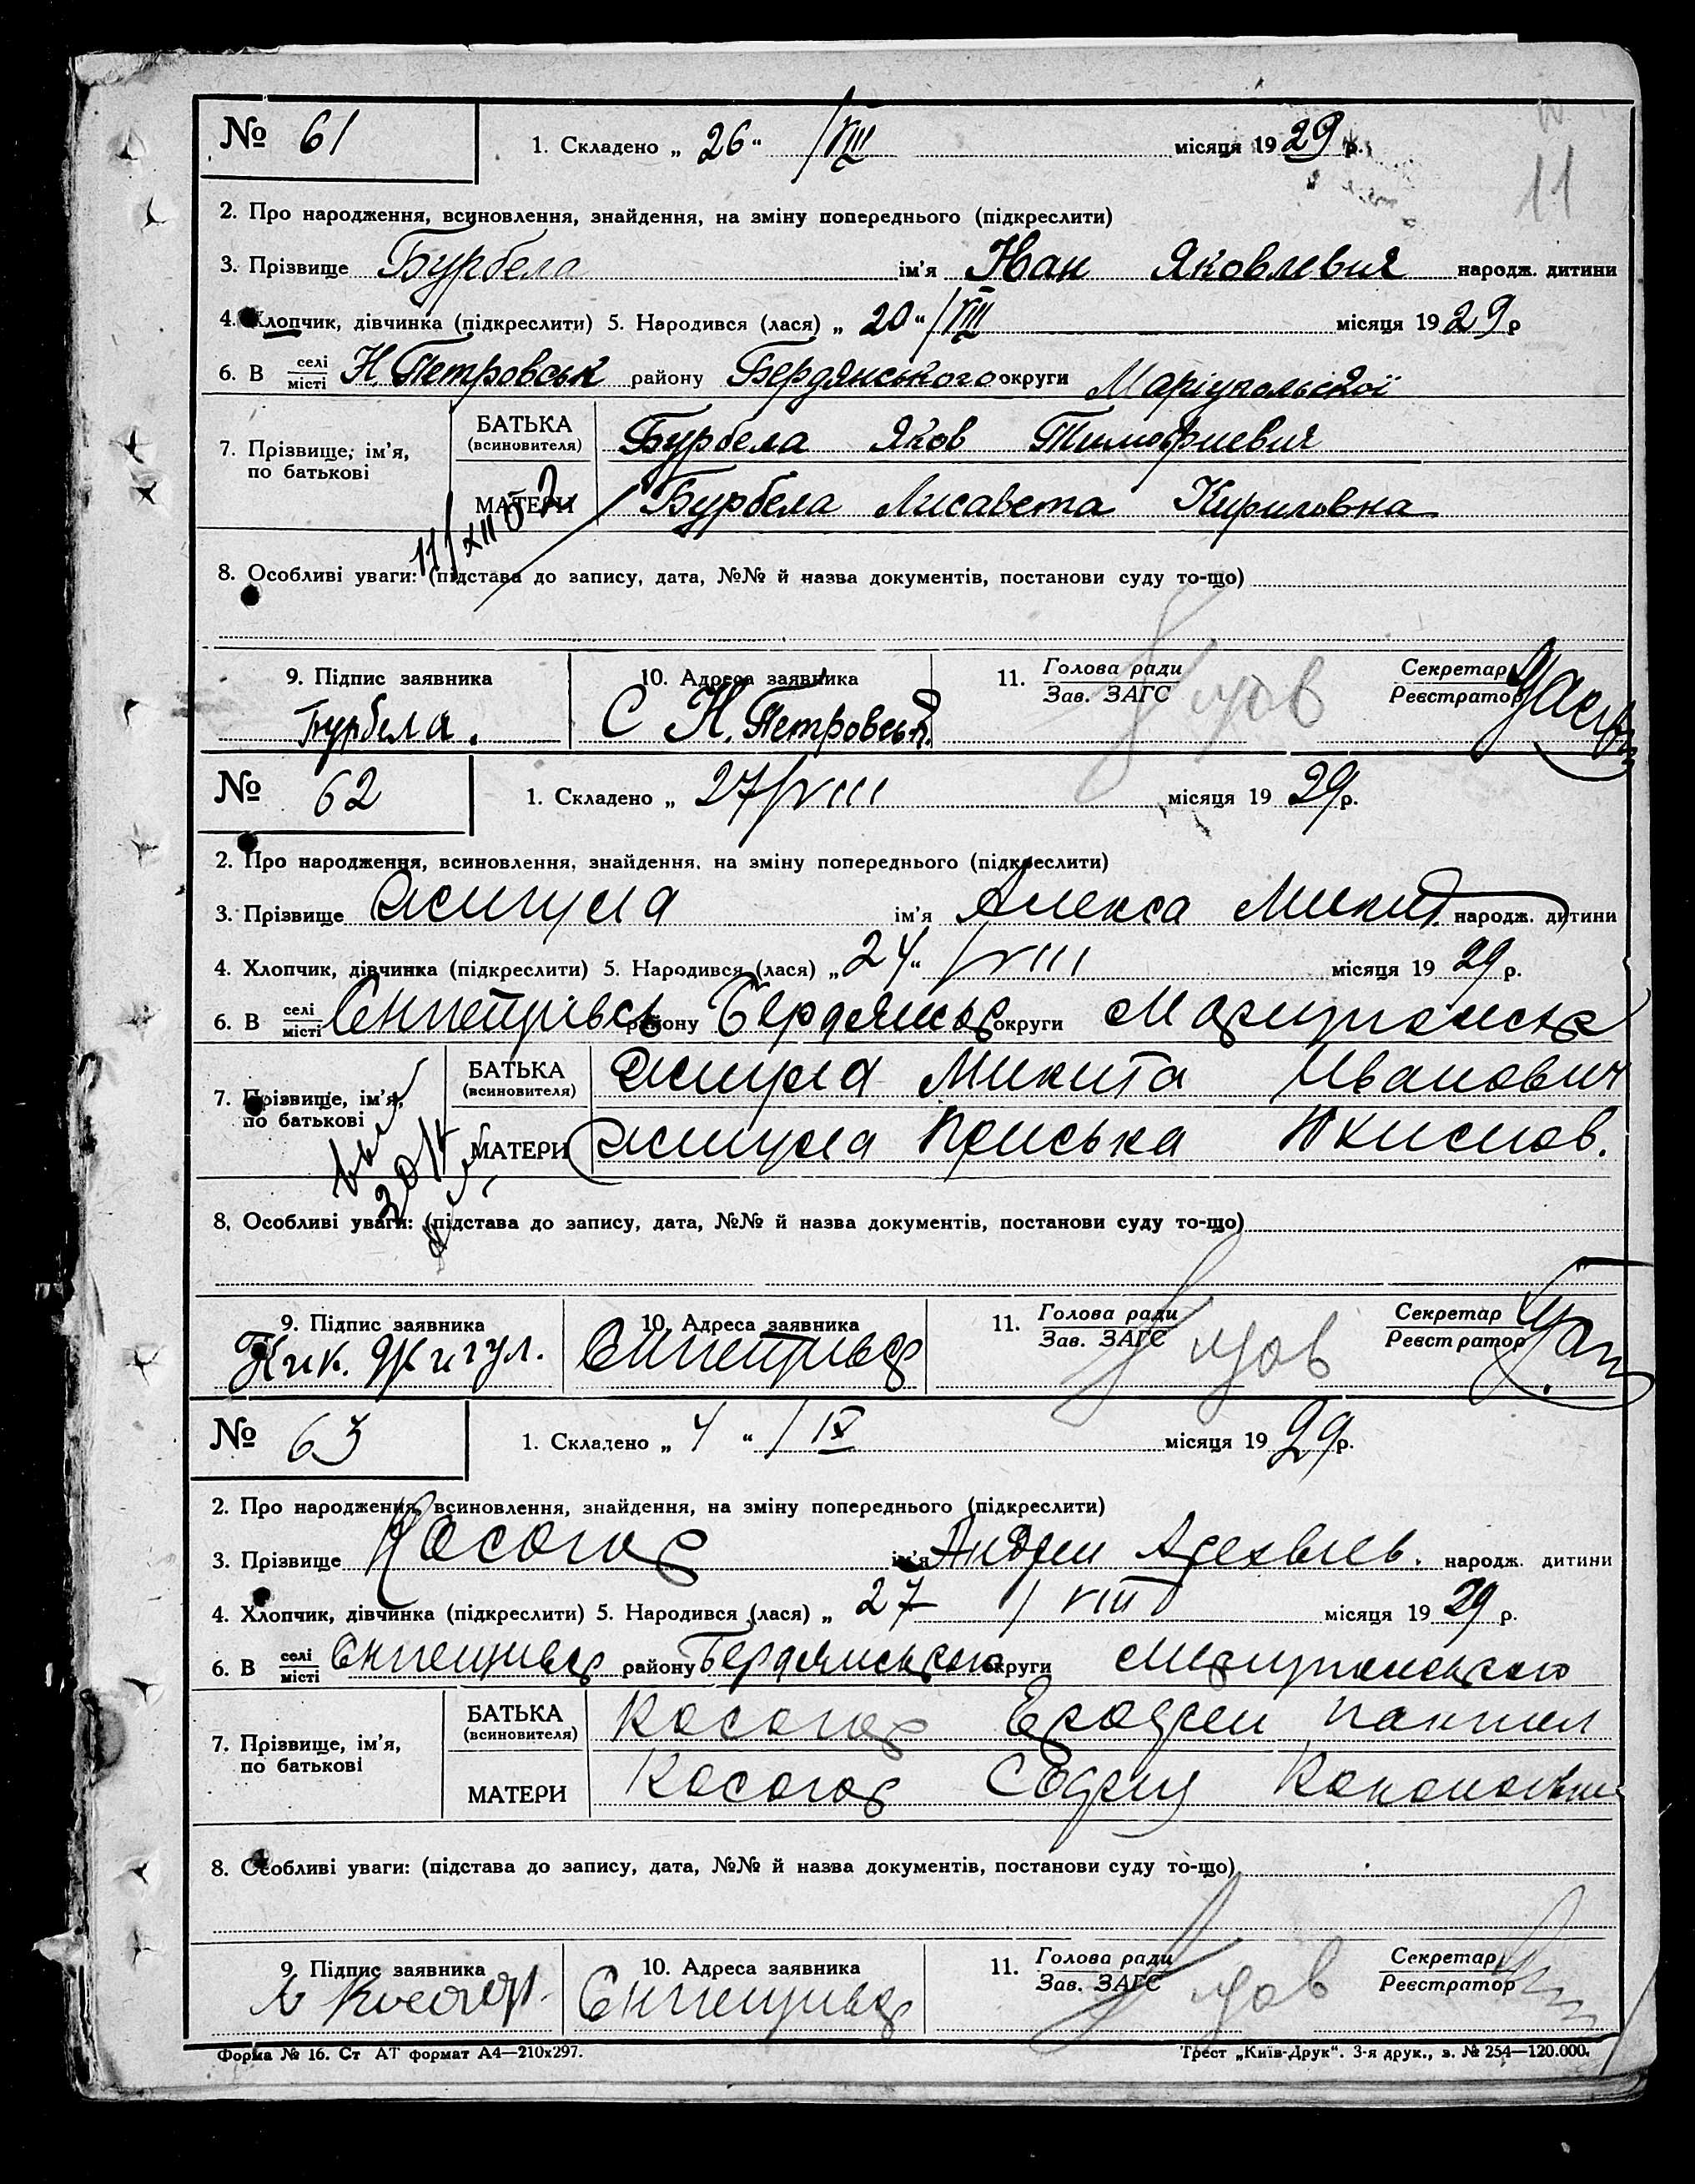 11
№ 61
1. Складено „ 26 “ /VIII місяця 1929 р.
2. Про народження, всиновлення, знайдення, на зміну попереднього (підкреслити)
3. Прізвище Бурбела ім'я Іван Яковлевич народж. дитини
4. Хлопчик, дівчинка (підкреслити) 5. Народився (лася) „ 20 “ /VIII місяця 1929 р
6. В селі місті Н. Петровськ району Бердянського округи Маріупольської
7. Прізвище, ім'я, по батькові
БАТЬКА (всиновителя) Бурбела Яков Тимофиевич
МАТЕРИ Бурбела Лисавета Кириловна
8. Особливі уваги: (підстава до запису, дата, №№ й назва документів, постанови суду то-що)
9. Підпис заявника 10. Адреса заявника 11. Голова ради Зав. ЗАГС Секретар Реєстратор
Бурбела. С Н. Петровськ
№ 62
1. Складено „ 27/VIII місяця 1929 р.
2. Про народження, всиновлення, знайдення, на зміну попереднього (підкреслити)
3. Прізвище ім'я Алекса Микит народж. дитини
4. Хлопчик, дівчинка (підкреслити) 5. Народився (лася) „ 24 “ /VIII місяця 1929 р.
6. В селі місті району Бердянськ округи
7. Прізвище, ім'я, по батькові
БАТЬКА (всиновителя) Микита Иванович
МАТЕРИ Приська
8. Особливі уваги: (підстава до запису, дата, №№ й назва документів, постанови суду то-що)
9. Підпис заявника 10. Адреса заявника 11. Голова ради Зав. ЗАГС Секретар Реєстратор
Жигул.
№ 63
1. Складено „ 4 “ /IX місяця 1929 р.
2. Про народження, всиновлення, знайдення, на зміну попереднього (підкреслити)
3. Прізвище Косогор ім'я Андрей народж. дитини
4. Хлопчик, дівчинка (підкреслити) 5. Народився (лася) „ 27 / VIII місяця 1929 р.
6. В селі місті району Бердянського округи
7. Прізвище, ім'я, по батькові
БАТЬКА (всиновителя) Косогор
МАТЕРИ Косогор
8. Особливі уваги: (підстава до запису, дата, №№ й назва документів, постанови суду то-що)
9. Підпис заявника 10. Адреса заявника 11. Голова ради Зав. ЗАГС Секретар Реєстратор
Форма № 16. Ст АТ формат А4—210х297. Трест „Київ-Друк“. 3-я друк., з. № 254—120.000.